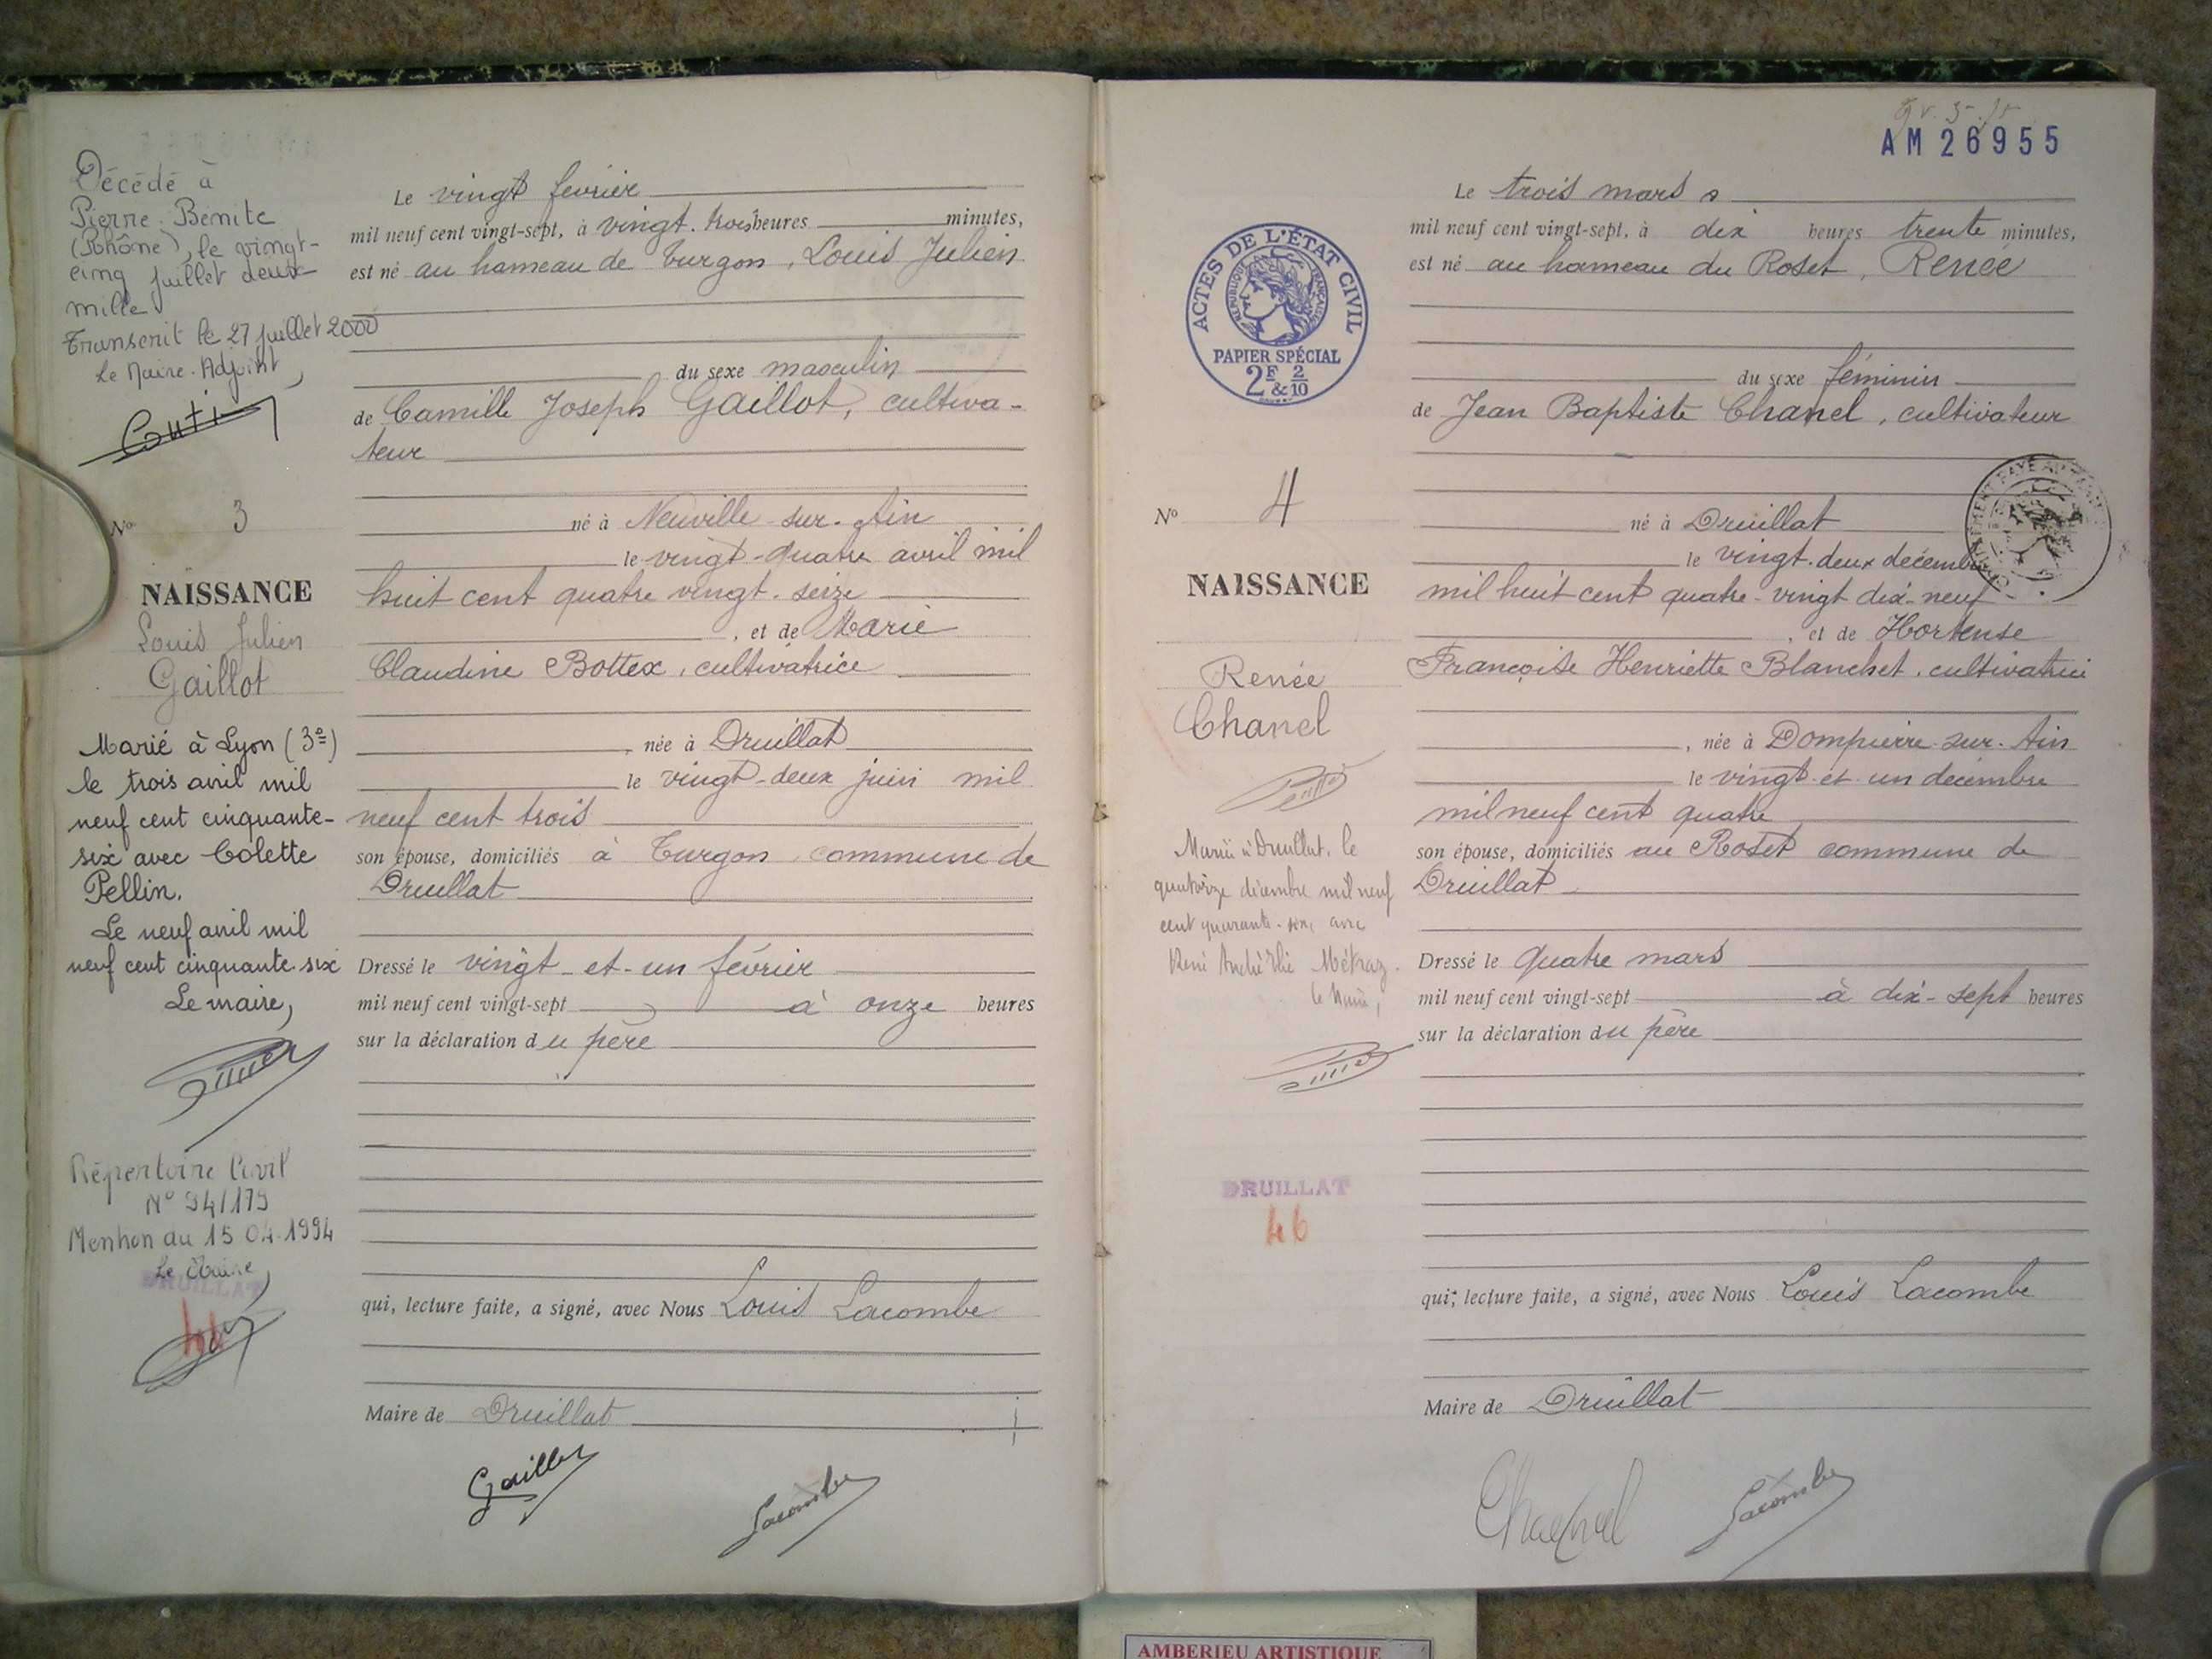 Décédé à
Pierre-Bénite
(Rhône), le vingt-
cinq juillet deux
mille
Transcrit le 27 juillet 2000
Le Maire-Adjoint,
N° 3
NAISSANCE
Louis Julien
Gaillot
Marié à Lyon (3e)
le trois avril mil
neuf cent cinquante-
six avec Colette
Pellin.
Le neuf avril mil
neuf cent cinquante-six
Le maire,
Répertoire Civil
N° 94/179
Mention du 15 04 1994
Le Maire,
DRUILLAT
Le vingt février
mil neuf cent vingt-sept, à vingt-trois heures minutes,
est né au hameau de Turgon, Louis Julien
du sexe masculin
de Camille Joseph Gaillot, cultiva-
teur
né à Neuville-sur-Ain
le vingt-quatre avril mil
huit cent quatre vingt-seize
, et de Marie
Claudine Bottex, cultivatrice
, née à Druillat
le vingt-deux juin mil
neuf cent trois
son épouse, domiciliés à Turgon, commune de
Druillat
Dressé le vingt-et-un février
mil neuf cent vingt-sept à onze heures
sur la déclaration du père
qui, lecture faite, a signé, avec Nous Louis Lacombe
Maire de Druillat
Gaillot
Lacombe
AM 26955
ACTES DE L'ÉTAT CIVIL
RÉPUBLIQUE FRANÇAISE
PAPIER SPÉCIAL
2F & 2/10
N° 4
NAISSANCE
Renée
Chanel
Mariée à Druillat, le
quatorze décembre mil neuf
cent quarante-six, avec
René André Métraz.
le Maire,
DRUILLAT
46
Le trois mars
mil neuf cent vingt-sept, à dix heures trente minutes,
est né au hameau du Roset, Renée
du sexe féminin
de Jean Baptiste Chanel, cultivateur
né à Druillat
le vingt-deux décembre
mil huit cent quatre-vingt dix-neuf
, et de Hortense
Françoise Henriette Blanchet, cultivatrice
, née à Dompierre-sur-Ain
le vingt-et-un décembre
mil neuf cent quatre
son épouse, domiciliés au Roset commune de
Druillat
Dressé le quatre mars
mil neuf cent vingt-sept à dix-sept heures
sur la déclaration du père
qui, lecture faite, a signé, avec Nous Louis Lacombe
Maire de Druillat
Chanel
Lacombe
AMBERIEU ARTISTIQUE